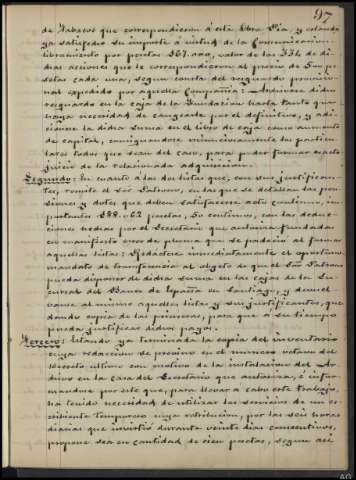 97
de Tabacos que correspondieron á esta Obra Pía, y estando
ya satisfecho su importe á virtud de la Comunicación
libramiento por pesetas 167.000, valor de las 334 de di-
chas acciones que le correspondieron al precio de 500 pe-
setas cada una, segun consta del resguardo provisio-
nal expedido por aquella Compañía: Archívese dicho
resguardo en la caja de la Fundación hasta tanto que
haya necesidad de cangearle por el definitivo, y adi-
cione la dicha suma en el libro de caja como aumento
de capital, consignandose minuciosamente los particu-
lares todos que sean del caso, para poder formar exacto
juicio de la relacionada adquisicion.
Segundo: En cuanto á las dos listas que, con sus justifican-
tes, remite el Sor Patrono, en las que se detallan las pen-
siones y dotes que deben satisfacerse acto contínuo, im-
portantes 188.062 pesetas, 50 centimos, con las deduc-
ciones hechas por el Secretario que autoriza fundadas
en manifiesto error de pluma que se padeció al formar
aquellas listas: Redáctese inmediatamente el oportuno
mandato de transferencia al objeto de que el Sor Patrono
pueda disponer de dicha suma en las cajas de la Su-
cursal del Banco de España en Santiago, y devuél-
vanse al mismo aquellas listas y sus justificantes, que-
dando copia de las primeras, para que á su tiempo
pueda justificar dichos pagos.
Tercero: Estando ya terminada la copia del inventario
cuya redaccion se previno en el número octavo del
Decreto último con motivo de la instalacion del Ar-
chivo en la casa del Secretario que autoriza, é infor-
mandose por este que, para llevar á cabo este trabajo,
ha tenido necesidad de utilizar los servicios de un es-
cribiente temporero cuya retribucion, por las seis horas
diarias que invirtió durante veinte dias consecutivos,
propone sea en cantidad de cien pesetas, segun así